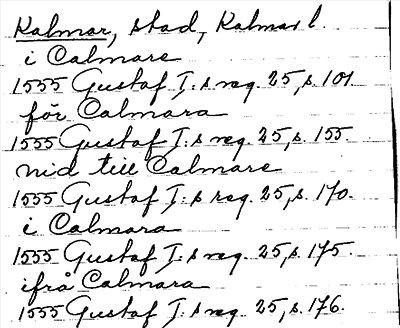 Kalmar, stad, Kalmar l.
i Calmare
1555 Gustaf I:s reg. 25, s. 101.
för Calmara
1555 Gustaf I:s reg. 25, s. 155.
nid till Calmare
1555 Gustaf I:s reg. 25, s. 170.
i Calmara
1555 Gustaf I:s reg. 25, s. 175.
ifrå Calmara
1555 Gustaf I:s reg. 25, s. 176.